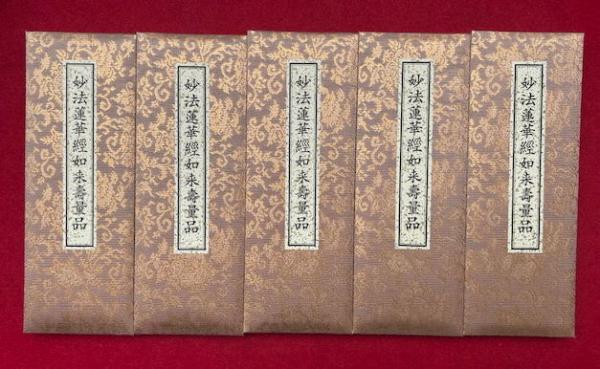 妙法蓮華經如来壽量品
妙法蓮華經如来壽量品
妙法蓮華經如来壽量品
妙法蓮華經如来壽量品
妙法蓮華經如来壽量品